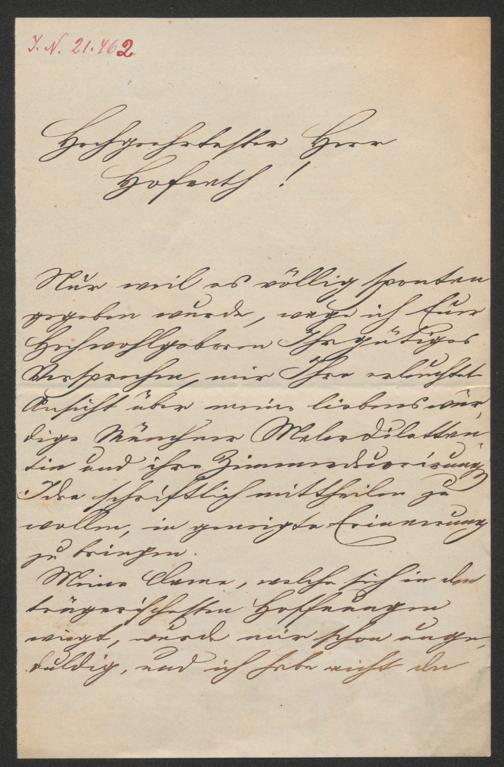 I. N. 21.462
Hochgeehrtester Herr
Hofrath!
Nur weil es völlig spontan
gegeben wurde, wage ich Euer
Hochwohlgeboren Ihr gütiges
Versprechen, mir Ihre erleuchtete
Ansicht über meine liebenswür
dige Münchner Malerdiletten
tin und ihre Zimmerdecorirungs
Idee schriftlich mittheilen zu
wollen, in geneigte Erinnerung
zu bringen.
Meine Dame, welche sich in den
trügerischesten Hoffnungen
wiegt, wurde mir schon unge
duldig, und ich habe nicht den